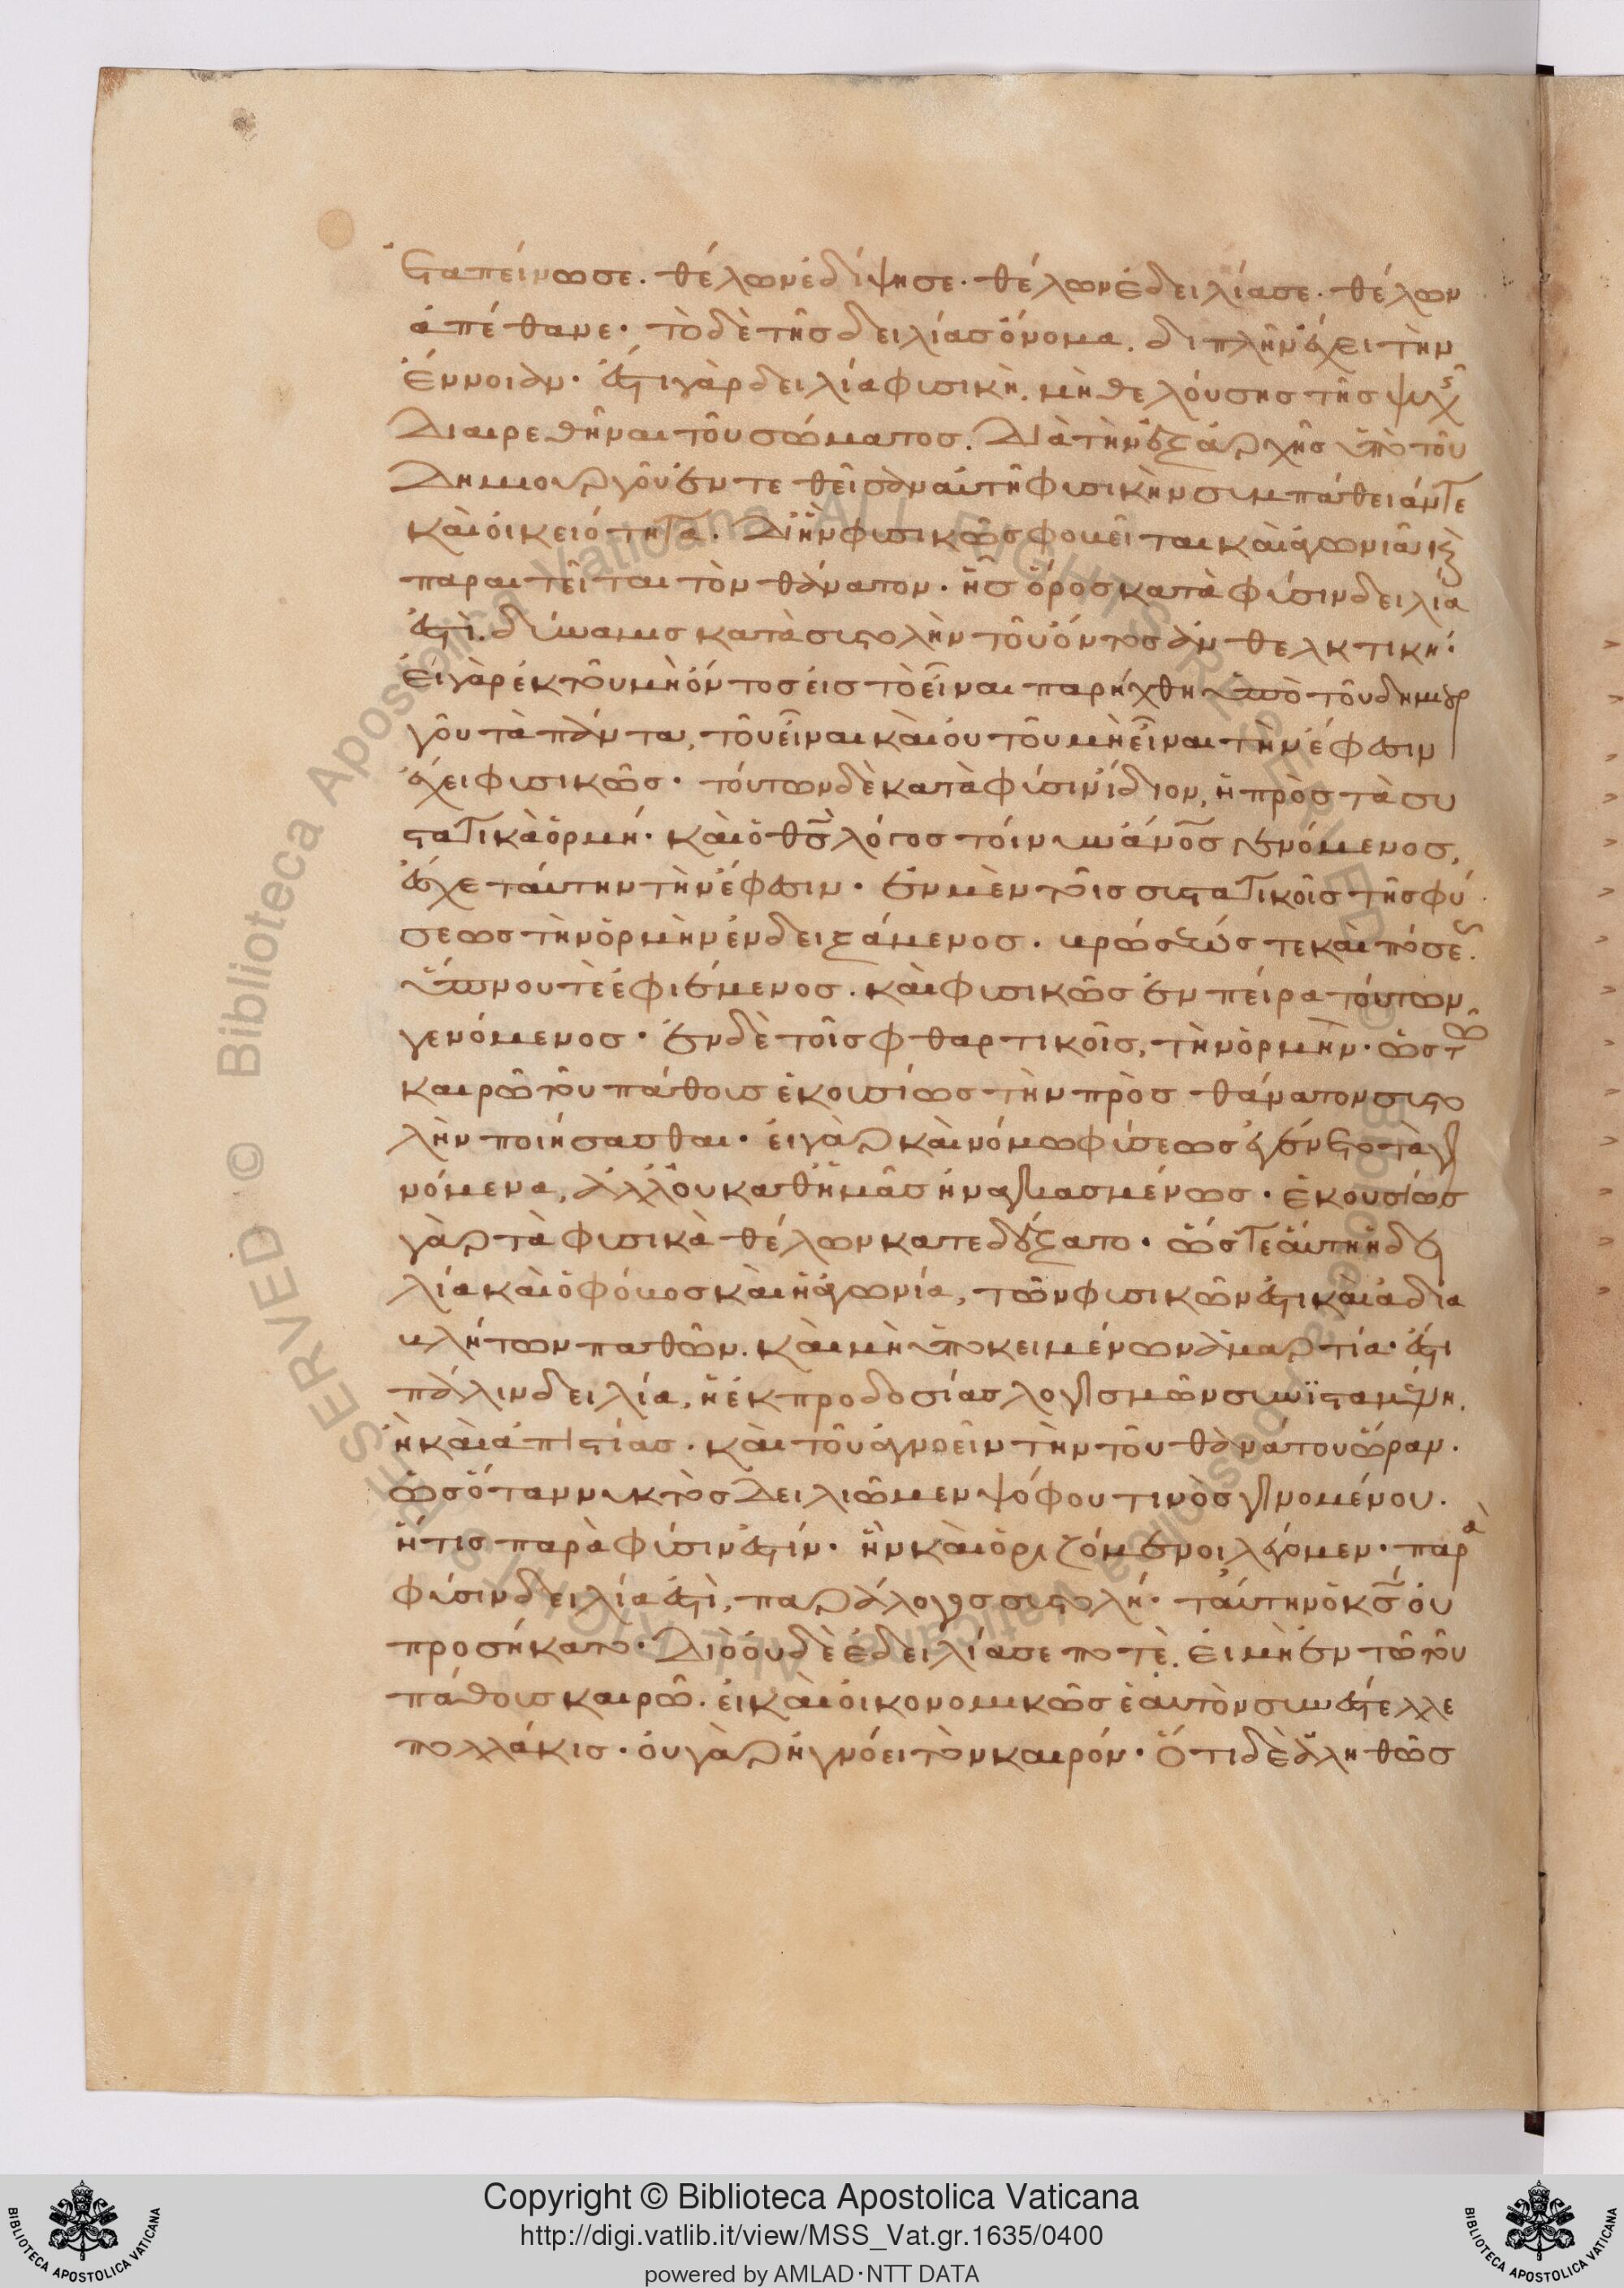 ἐπείνωσε. θέλων ἐδίψησε. θέλων ἐδειλίασε. θέλων
ἀπέθανε. τὸ δὲ τῆς δειλίας ὄνομα. διπλῆν ἔχει τὴν
ἔννοιαν. ἔστι γὰρ δειλία φυσικὴ. μὴ θελούσης τῆς ψυχῆς
διαιρεθῆναι τοῦ σώματος. διὰ τὴν ἐξ ἀρχῆς ὑπὸ τοῦ
δημιουργοῦ ἐντεθεῖσαν αὐτῇ φυσικὴν συμπάθειάν τε
καὶ οἰκειότητα. δι' ἣν φυσικῶς φοβεῖται καὶ ἀγωνιᾶ κ
παραιτεῖται τὸν θάνατον. ἧς ὅρος κατὰ φύσιν δειλία
ἐστὶ. δύναμις κατὰ συστολὴν τοῦ ὄντος ἀνθελκτική.
εἰ γὰρ ἐκ τοῦ μὴ ὄντος εἰς τὸ εἶναι παρήχθη ὑπὸ τοῦ δημιουρ
γοῦ τὰ πάντα, τοῦ εἶναι καὶ οὐ τοῦ μὴ εἶναι τὴν ἔφεσιν
ἔχει φυσικῶς. τούτων δὲ κατὰ φύσιν ἴδιον, ἡ πρὸς τὰ συ
στατικὰ ὁρμή. καὶ ὁ θς λόγος τοίνυν ἄνος γενόμενος,
ἔσχε ταύτην τὴν ἔφεσιν. ἐν μὲν τοῖς συστατικοῖς τῆς φύ
σεως τὴν ὁρμὴν ἐνδειξάμενος. βρώσεώς τε καὶ πόσεως.
ὕπνου τὲ ἐφιέμενος. καὶ φυσικῶς ἐν πείρα τούτων
γενόμενος. ἐν δὲ τοῖς φθαρτικοῖς, τὴν ὁρμὴν. ὡς τῶ
καιρῶ τοῦ πάθους ἑκουσίως τὴν πρὸς θάνατον συστο
λὴν ποιήσασθαι. εἰ γὰρ καὶ νόμω φύσεως ἐγένετο τὰ γι
νόμενα, ἀλλ' οὐ καθ' ἡμᾶς ἠναγκασμένως. ἑκουσίως
γὰρ τὰ φυσικὰ θέλων κατεδέξατο. ὥστε αὕτη ἡ δει
λία καὶ ὁ φόβος καὶ ἡ ἀγωνία, τῶν φυσικῶν ἐστι καὶ ἀδια
βλήτων παθῶν. καὶ μὴ ὑποκειμένων ἁμαρτία. ἔστι
πάλιν δειλία, ἡ ἐκ προδοσίας λογισμῶν συνϊσταμένη.
ἢ καὶ ἀπιστίας. καὶ τοῦ ἀγνοεῖν τὴν τοῦ θανάτου ὥραν.
ὡς ὅταν νυκτὸς δειλιῶμεν ψόφου τινὸς γινομένου.
ἥτις παρὰ φύσιν ἐστίν. ἣν καὶ ὁριζόμενοι λέγομεν. παρὰ
φύσιν δειλία ἐστὶ, παράλογος συστολή. ταύτην ὁ κς οὐ
προσήκατο. διὸ οὐδὲ ἐδειλίασε ποτὲ. εἰ μὴ ἐν τῶ τοῦ
πάθους καιρῶ. εἰ καὶ οἰκονομικῶς ἑαυτὸν συνέστελλε
πολλάκις. οὐ γὰρ ἠγνόει τὸν καιρόν. ὅτι δὲ ἀληθῶς
Copyright © Biblioteca Apostolica Vaticana
http://digi.vatlib.it/view/MSS_Vat.gr.1635/0400
powered by AMLAD·NTT DATA